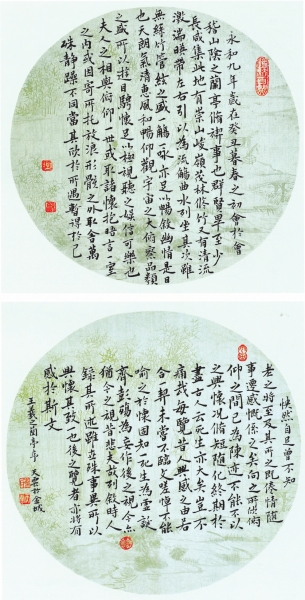 永和九年歲在癸丑暮春之初會於會
稽山陰之蘭亭脩禊事也群賢畢至少
長咸集此地有崇山峻嶺茂林脩竹又有清流
激湍暎帶左右引以為流觴曲水列坐其次雖
無絲竹管絃之盛一觴一詠亦足以暢敘幽情是日
也天朗氣清惠風和暢仰觀宇宙之大俯察品類
之盛所以遊目騁懷足以極視聽之娛信可樂也
夫人之相與俯仰一世或取諸懷抱晤言一室
之內或因寄所托放浪形骸之外取舍萬
殊靜躁不同當其欣於所遇暫得於己
怏然自足曾不知
老之將至及其所之既倦情隨
事遷感慨係之矣向之所欣俯
仰之間已為陳迹不能不以
之興懷況脩短隨化終期於
盡古人云死生亦大矣豈不
痛哉每覽昔人興感之由若
合一契未嘗不臨文嗟悼不能
喻之於懷固知一死生為虛誕
齊彭殤為妄作後之視今亦
猶今之視昔悲夫故列敘時人
錄其所述雖世殊事異所以
興懷其致也後之覽者亦將有
感於斯文
王羲之蘭亭序 天雲於金城